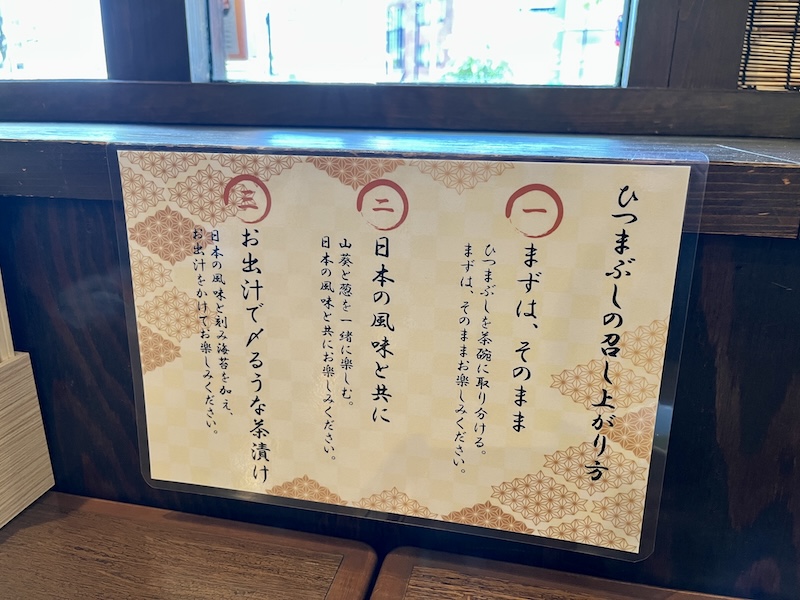 ひつまぶしの召し上がり方
一
まずは、そのまま
ひつまぶしを茶碗に取り分ける。
まずは、そのままお楽しみください。
二
日本の風味と共に
山葵と葱を一緒に楽しむ。
日本の風味と共にお楽しみください。
三
お出汁で〆るうな茶漬け
日本の風味と刻み海苔を加え、
お出汁をかけてお楽しみください。